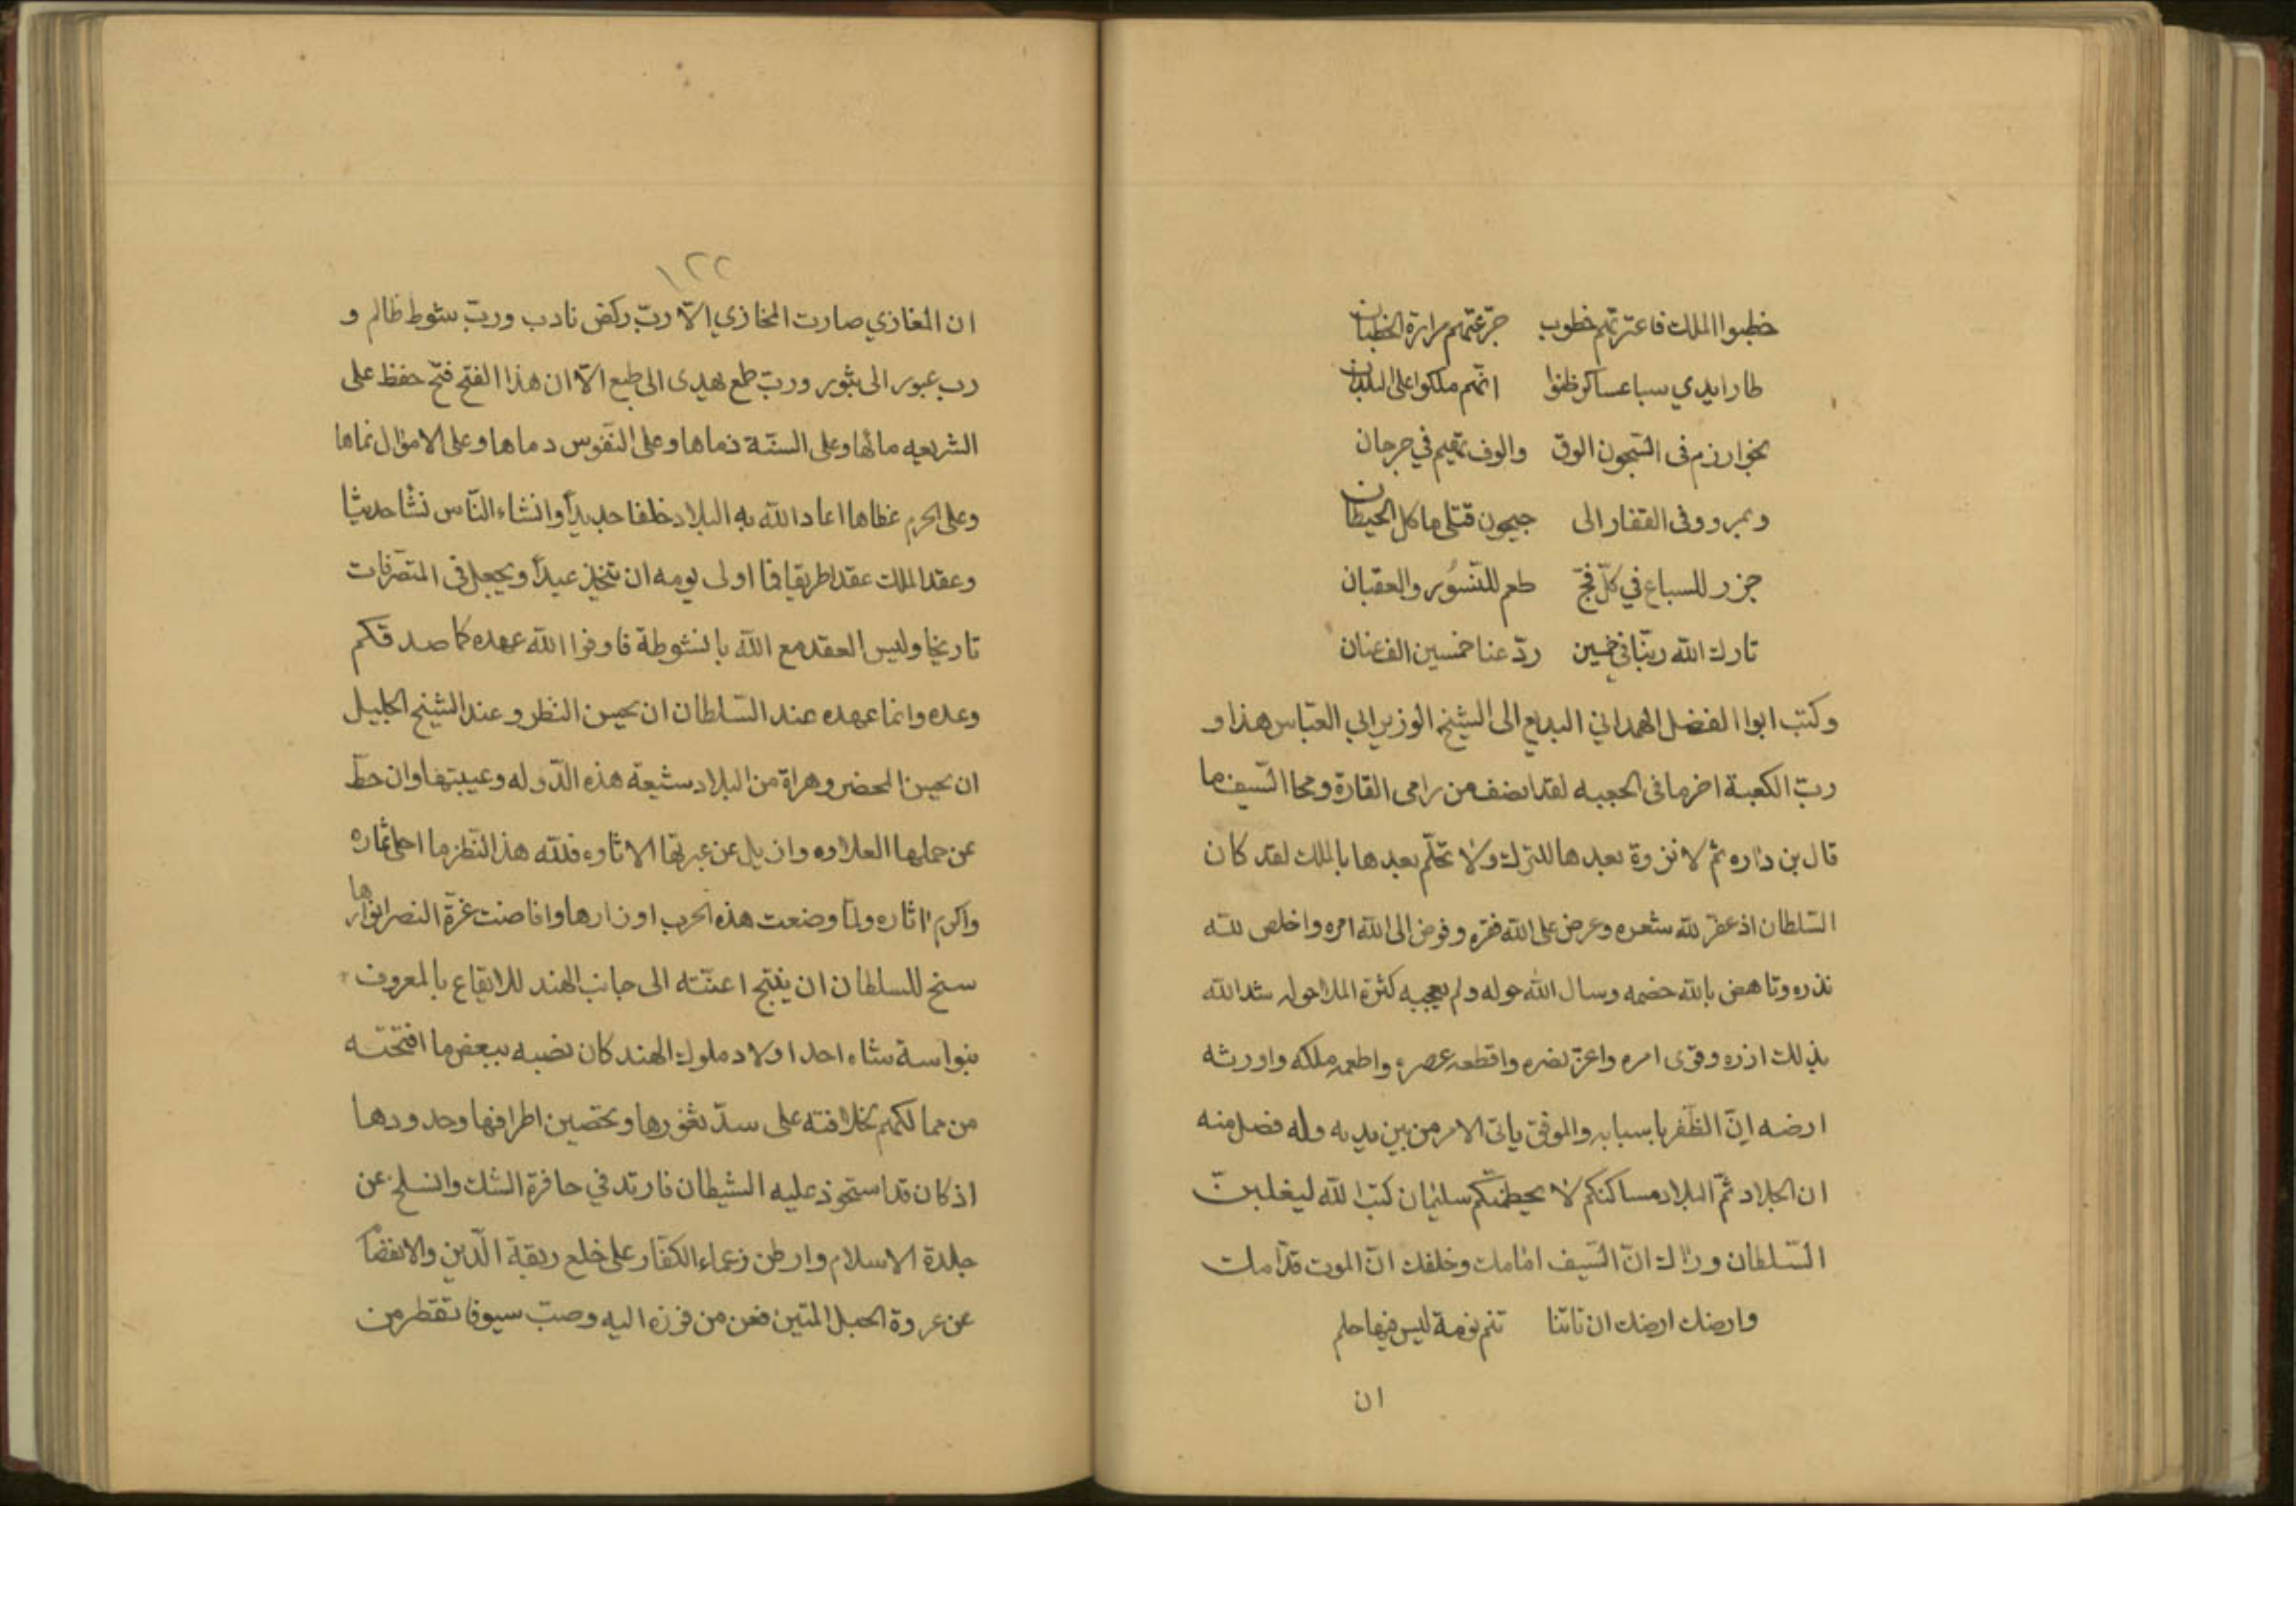 خطبوا الملك فاعترتهم خطوب جرّعتهم مرارة الخطبان
طار ايدي سبا عساكر ظنوا انّهم ملكوا على البلدان
بخوارزم فى السّجون الوق والوف تقيم في جرجان
وبمرو وفى القفار الى جيحون قتلى ما كل الحيطان
جزر للسباع في كلّ فجّ طعم للنّسور والعقبان
تارك الله ربّنا في خمسين ردّ عنا خمسين الف عنان
وكتب ابوا الفضل الهمداني البديع الى الشيخ الوزير ابي العبّاس هذا و
ربّ الكعبة اخر ما فى الجعبه لقد انصف من رامى القارة ومحا السّيف ما
قال بن داره ثم لا نزوة بعدها للترك ولا تحلّم بعدها بالملك لقد كان
السّلطان اذ عفّر لله شعره وعرض على الله فقره وفوض الى الله امره واخلص لله
نذره وتاهض بالله خصمه وسال الله حوله ولم يعجبه كثرة الملا حوله شد الله
بذلك ازره وقوى امره واعزّ نصره واقطعه عصره واطعمه ملكه واورثه
ارضه انّ الظّفر باسبابه والموفق ياتى الامر من بين يديه وله فضل منه
ان الجلاد ثمّ البلاد مساكنكم لا يحطمنّكم سليمان كتب الله ليغلبنّ
السّلطان وراك انّ السّيف امامك وخلفك انّ الموت قدّامك
وارضك ارضك ان تاتنا تنم نومة ليس فيها حلم
ان
١٢٢
ان المغازي صارت المخازي الّا ربّ ركض نادب وربّ شوط ظالم و
رب عبور الى ثبور وربّ طمع يهدى الى طبع الّا ان هذا الفتح فتح حفظ على
الشريعه مائها وعلى السنّة ذماها وعلى النّفوس دماها وعلى الاموال نماها
وعلى الحرم غطاها اعاد الله به البلاد خلفا جديداً وانشاء النّاس نشأ حديثا
وعقد الملك عقدا طريقا فما اولى يومه ان يتّخذ عيداً ويجعل فى المتصرّفات
تاريخا وليس العقد مع الله بانشوطة فاوفوا الله عهده كما صدقكم
وعده وانما عهده عند السّلطان ان يحسن النظر وعند الشيخ الجليل
ان يحسن المحضر وهراة من البلاد شيعة هذه الدّوله وعيبتها وان حطّ
عن حملها العلاوه وازيل عن عبرتها الاثاوه فلله هذا النّظر ما احلى ثماره
واكرم اثاره ولمّا وضعت هذه الحرب اوزارها وافاضت غرّة النصر انوارها
سنح للسلطان ان يثبج اعنّته الى جانب الهند للايقاع بالمعروف
بنواسة شاه احد اولاد ملوك الهند كان نصبه ببعض ما افتتحته
من ممالكهم بخلافته على سدّ ثغورها وتحصين اطرافها وحدودها
اذ كان قد استحوذ عليه الشيطان فارتد في حافرة الشك وانسلح عن
جلدة الاسلام وارطن زعماء الكفّار على خلع ربقة الدّين والانفصام
عن عروة الحبل المتين فعن من فوزه اليه وصبّ سيوفا تقطر من